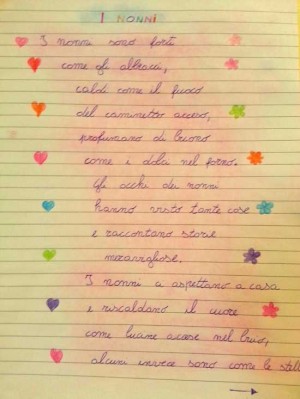 I NONNI
I nonni sono forti
come gli abbracci,
caldi come il fuoco
del caminetto acceso,
profumano di buono
come i dolci nel forno.
Gli occhi dei nonni
hanno visto tante cose
e raccontano storie
meravigliose.
I nonni ci aspettano a casa
e riscaldano il cuore
come luci accese nel buio,
alcuni invece sono come le stelle